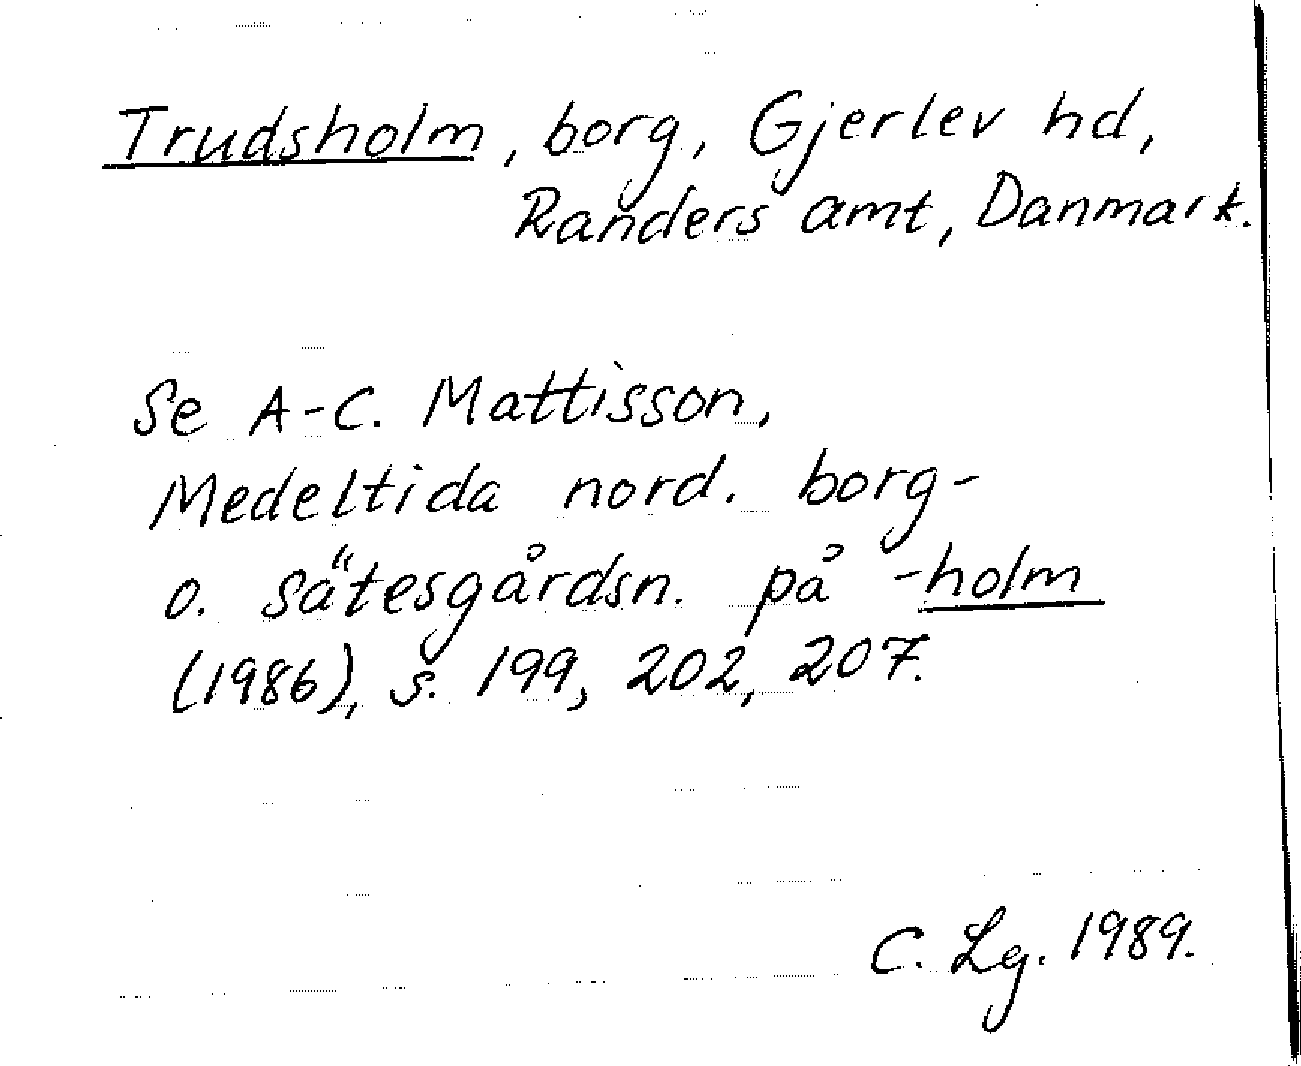 Trudsholm, borg, Gjerlev hd,
Randers amt, Danmark.
Se A-C. Mattisson,
Medeltida nord. borg-
o. sätesgårdsn. på -holm
(1986), s. 199, 202, 207.
C. Lg. 1989.